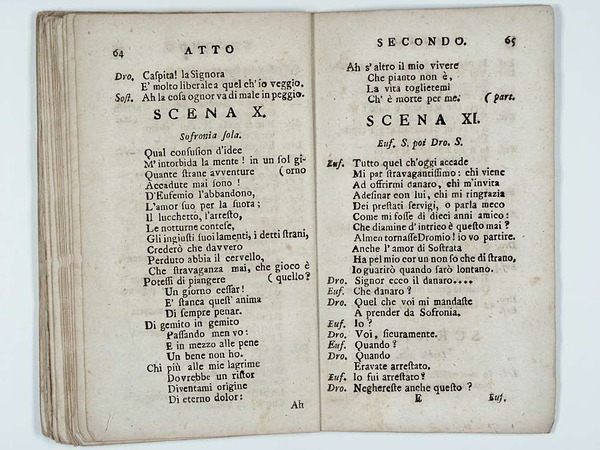 64 ATTO
Dro. Caspita! la Signora
E' molto liberale a quel ch'io veggio.
Sost. Ah la cosa ognor va di male in peggio.
SCENA X.
Sofronia sola.
Qual confusion d'idee
M'intorbida la mente! in un sol gi-
Quante strane avventure ( orno
Accadute mai sono!
D'Eufemio l'abbandono,
L'amor suo per la suora;
Il lucchetto, l'arresto,
Le notturne contese,
Gli ingiusti suoi lamenti, i detti strani,
Crederò che davvero
Perduto abbia il cervello,
Che stravaganza mai, che gioco è
Potessi di piangere ( quello?
Un giorno cessar!
E' stanca quest' anima
Di sempre penar.
Di gemito in gemito
Passando men vo:
E in mezzo alle pene
Un bene non ho.
Chi più alle mie lagrime
Dovrebbe un ristor
Diventami origine
Di eterno dolor:
Ah
SECONDO. 65
Ah s'altro il mio vivere
Che pianto non è,
La vita toglietemi
Ch' è morte per me. ( part.
SCENA XI.
Euf. S. poi Dro. S.
Euf. Tutto quel ch'oggi accade
Mi par stravagantissimo: chi viene
Ad offrirmi danaro, chi m'invita
A desinar con lui, chi mi ringrazia
Dei prestati servigi, o parla meco
Come mi fosse di dieci anni amico:
Che diamine d'intrico è questo mai?
Almen tornasse Dromio! io vo partire.
Anche l'amor di Sostrata
Ha pel mio cor un non so che di strano,
Io guarirò quando sarò lontano.
Dro. Signor ecco il danaro....
Euf. Che danaro?
Dro. Quel che voi mi mandaste
A prender da Sofronia.
Euf. Io?
Dro. Voi, sicuramente.
Euf. Quando?
Dro. Quando
Eravate arrestato.
Euf. Io fui arrestato?
Dro. Neghereste anche questo?
E Euf.